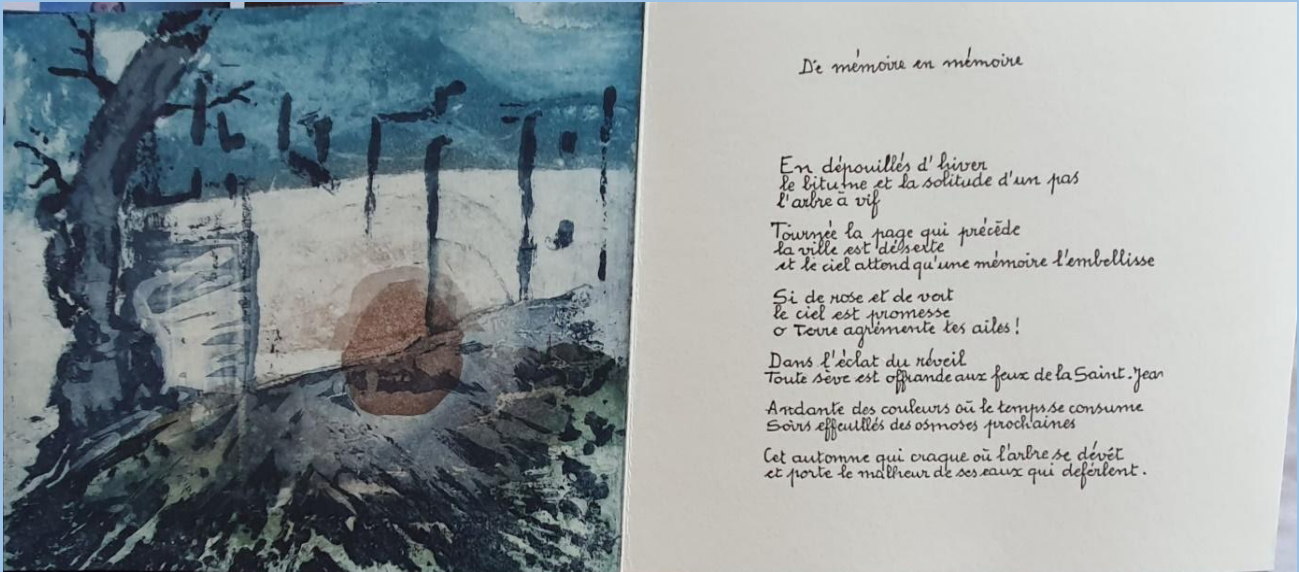 De mémoire en mémoire
En dépouillés d'hiver
le bitume et la solitude d'un pas
l'arbre à vif
Tournée la page qui précède
la ville est déserte
et le ciel attend qu'une mémoire l'embellisse
Si de rose et de vert
le ciel est promesse
o Terre agrémente tes ailes !
Dans l'éclat du réveil
Toute sève est offrande aux feux de la Saint.Jean
Andante des couleurs où le temps se consume
Soirs effeuillés des osmoses prochaines
Cet automne qui craque où l'arbre se dévêt
et porte le malheur de ses eaux qui déferlent.